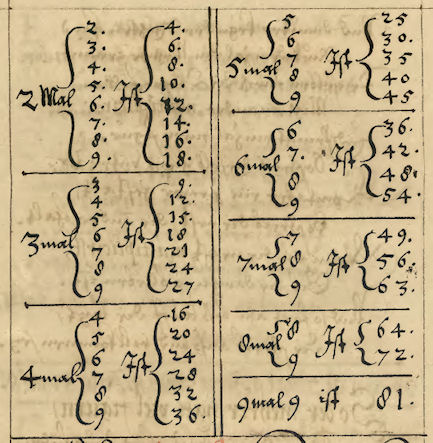 2.
4.
3.
6.
4.
8.
2 Mal
5.
Ist
10.
6.
12.
7.
14.
8.
16.
9.
18.
3
9.
4
12.
5
15.
3mal
6
Ist
18
7
21
8
24
9
27
4
16
5
20
6
24
4mal
7
Ist
28
8
32
9
36.
5
25
6
30.
5mal
7
Ist
35
8
40
9
45
6
36.
6mal
7.
Ist
42.
8
48.
9
54.
7
49.
7mal
8
Ist
56.
9
63.
8mal
8
Ist
64.
9
72.
9mal 9 ist 81.